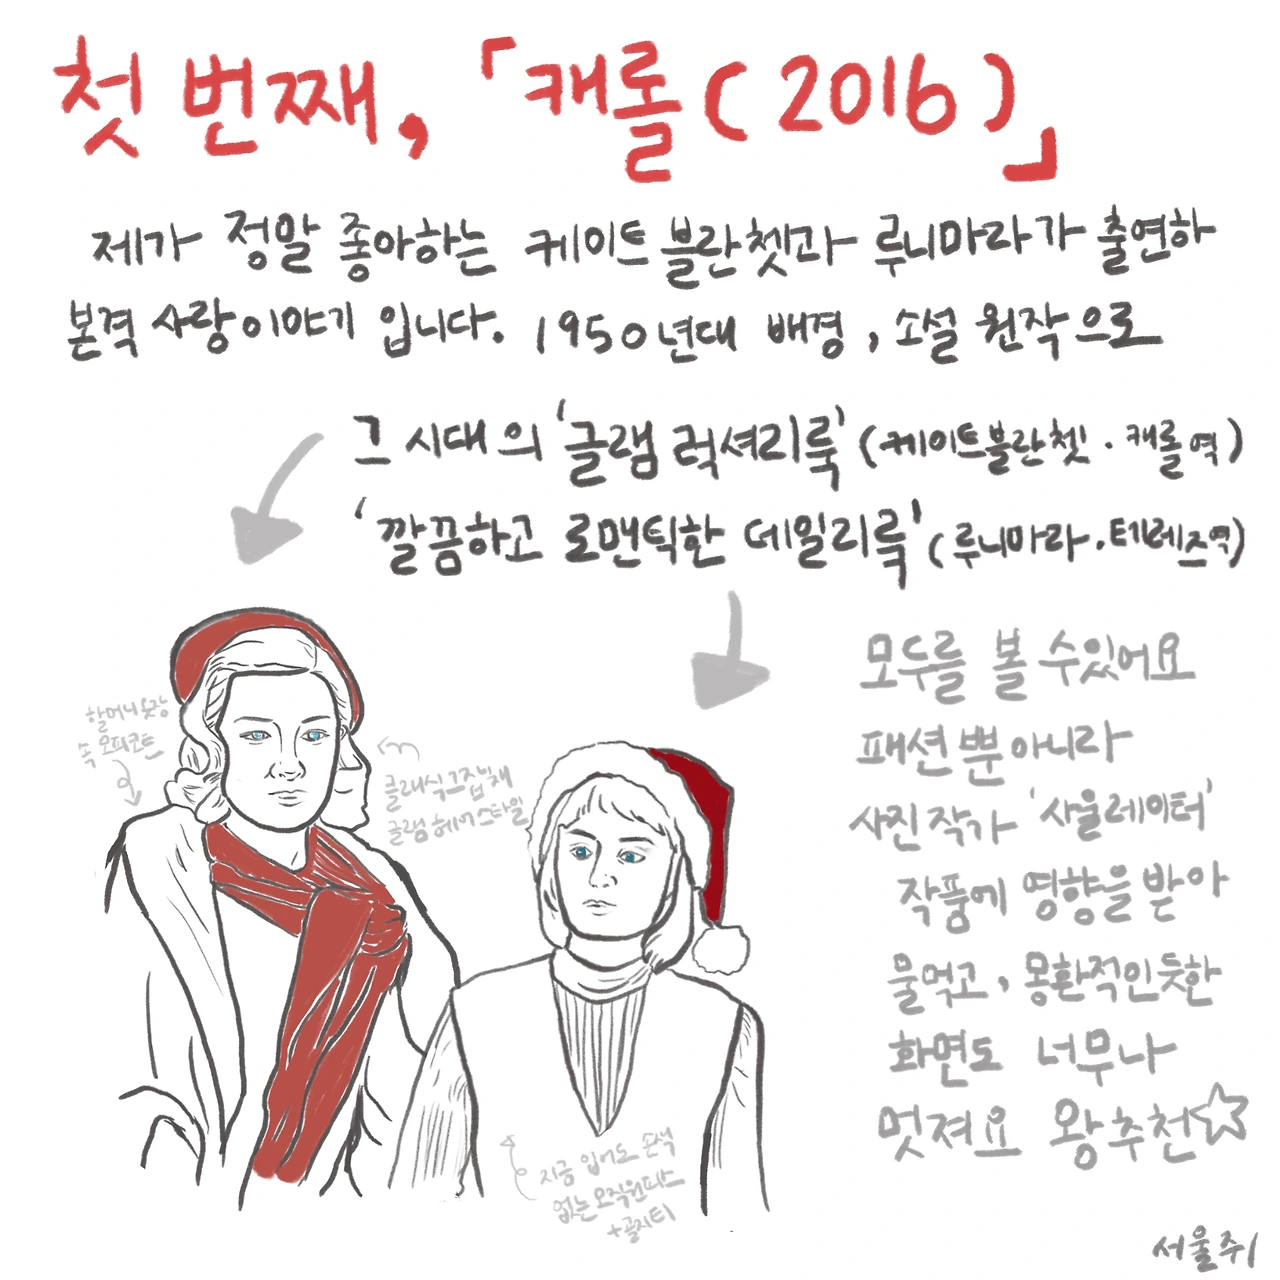 첫 번째, 「캐롤(2016)」
제가 정말 좋아하는 케이트 블란쳇과 루니마라가 출연하
본격 사랑이야기 입니다. 1950년대 배경, 소설 원작으로
그 시대의 '글램 럭셔리룩' (케이트블란쳇·캐롤역)
'깔끔하고 로맨틱한 데일리룩' (루니마라·테레즈역)
모두를 볼 수있어요
패션뿐아니라
사진작가 '사울레이터'
작품에 영향을 받아
물먹고, 몽환적인듯한
화면도 너무나
멋져요 왕추천☆
할머니옷장
속 모피코트
클래식그잡채
글램 헤어스타일
지금 입어도 손색
없는 오직원피스
+골지티
서울쥐